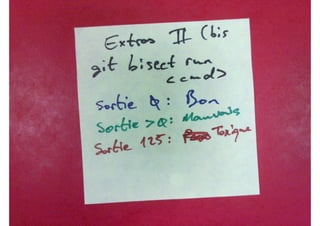 Extras II (bis
git bisect run
<cmd>
Sortie 0 : Bon
Sortie >0 : Mauvais
Sortie 125 : Toxique